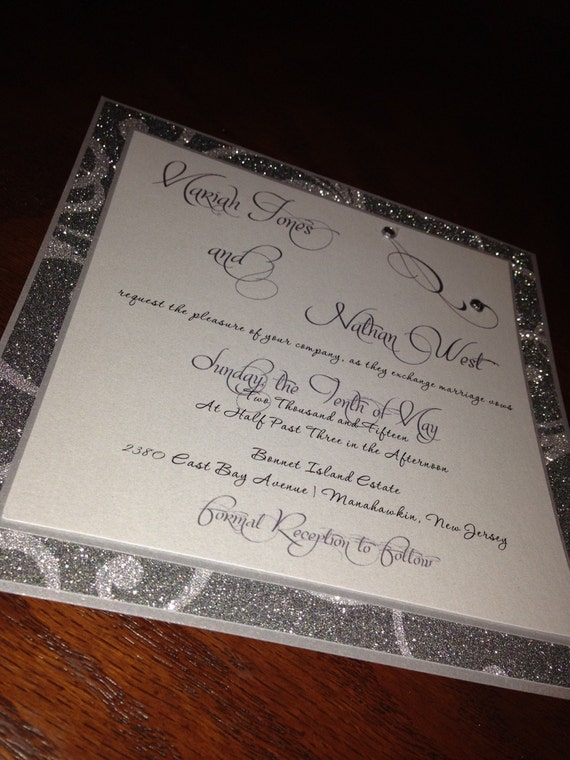 Mariah Jones
and
Nathan West
request the pleasure of your company, as they exchange marriage vows
Sunday, the Tenth of May
Two Thousand and Fifteen
At Half Past Three in the Afternoon
Bonnet Island Estate
2380 East Bay Avenue | Manahawkin, New Jersey
Formal Reception to Follow